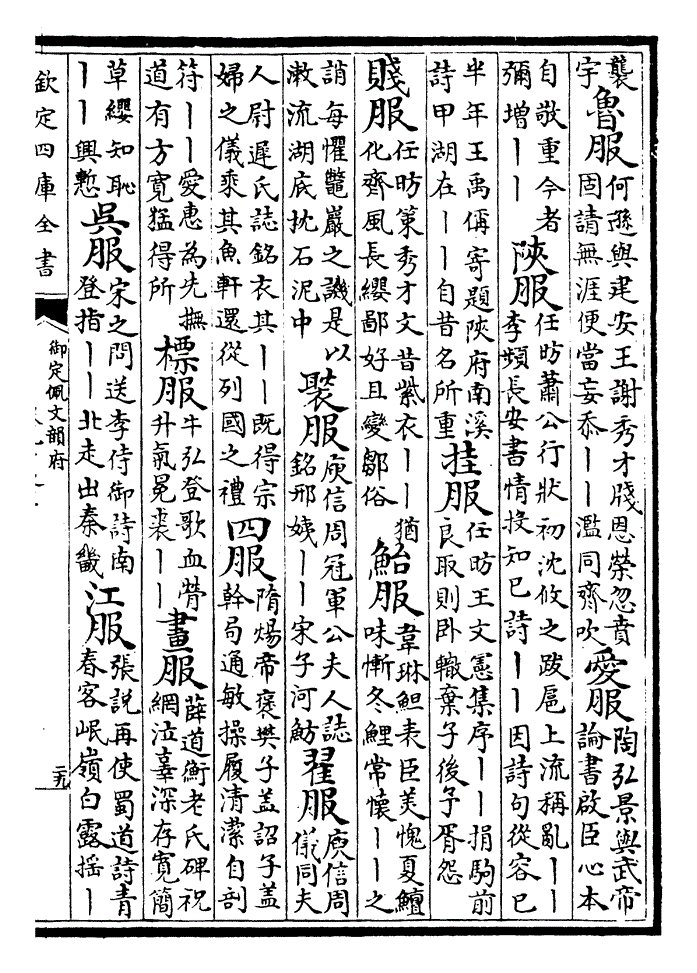 襲
宇
魯服
何遜與建安王謝秀才牋恩榮忽賁
固請無涯便當妄忝｜｜濫同齊吹
愛服
陶弘景與武帝
論書啟臣心本
自敬重今者
彌增｜｜
陝服
任昉蕭公行狀初沈攸之跋扈上流稱亂｜｜
李頻長安書情投知已詩｜｜因詩句從容已
半年王禹偁寄題陝府南溪
詩甲湖在｜｜自昔名所重
挂服
任昉王文憲集序｜｜捐駒前
良取則卧轍棄子後予胥怨
賤服
任昉策秀才文昔紫衣｜｜猶
化齊風長纓鄙好且變鄒俗
鮐服
韋琳䱇表臣美愧夏鱣
味慚冬鯉常懷｜｜之
誚每懼鼈巖之譏是以
漱流湖底枕石泥中
褧服
庾信周冠軍公夫人誌
銘邢姨｜｜宋子河魴
翟服
庾信周
儀同夫
人尉遲氏誌銘衣其｜｜既得宗
婦之儀乘其魚軒還從列國之禮
四服
隋煬帝褒樊子蓋詔子蓋
幹局通敏操履清潔自剖
符｜｜愛惠為先撫
道有方寛猛得所
標服
牛弘登歌血膋
升氣冕裘｜｜
畫服
薛道衡老氏碑祝
網泣辜深存寛簡
草纓知恥
｜｜興慙
吳服
宋之問送李侍御詩南
登指｜｜北走出秦畿
江服
張説再使蜀道詩青
春客岷嶺白露揺｜
欽定四庫全書
御定佩文韻府
二九